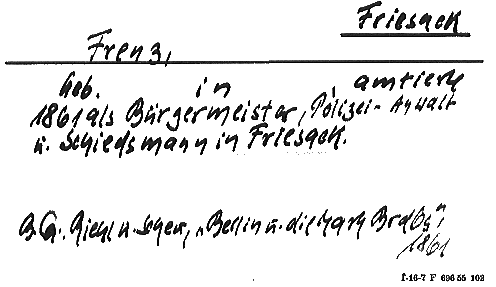 Friesack
Frenz,
Geb. in amtierte
1861 als Bürgermeister, Polizei-Anwalt
u. Schiedsmann in Friesack.
B.Q. Riehl u. Scheu, „Berlin u. die Mark Brdbg",
1861
f-16-7 F 696 55 102